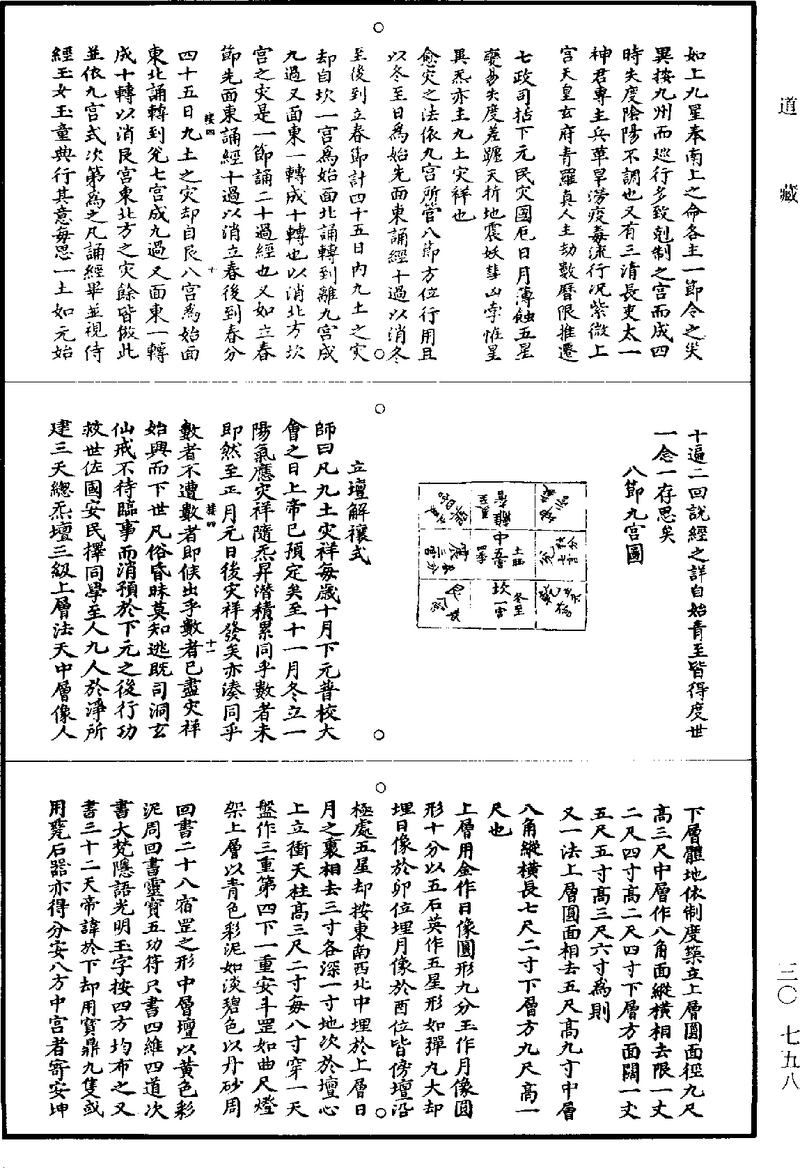 道藏
三〇 七五八
如上九星奉南上之命各主一節令之災
異按九州而巡行多致剋制之宮而成四
時失度陰陽不調也又有三清長吏太一
神君專主兵革旱澇疫毒流行況紫微上
宮天皇玄府青羅真人主劫數曆限推遷
七政司拈下元民灾國厄日月薄蝕五星
變易失度差躔天折地震妖彗凶孛惟星
異炁亦主九土灾祥也
愈灾之法依九宮所管八節方位行用且
以冬至日為始先面東誦經十過以消冬
至後到立春節計四十五日内九土之灾
却自坎一宮為始面北誦轉到離九宮成
九過又面東一轉成十轉也以消北方坎
宮之灾是一節誦二十過經也又如立春
節先面東誦經十過以消立春後到春分
四十五日九土之灾却自艮八宮為始面
東北誦轉到兌七宮成九過又面東一轉
成十轉以消艮宮東北方之灾餘皆倣此
並依九宮式次第為之凡誦經畢並視侍
經玉女玉童典行其意每思一土如元始
十遍二回說經之詳自始青至皆得度世
一念一存思矣
八節九宮圖
離九宮
夏至
中五宮
土旺
坎一宮
冬至
立壇解禳式
師曰凡九土灾祥每歲十月下元普校大
會之日上帝已預定矣至十一月冬立一
陽氣應灾祥隨炁昇潜積累同乎數者未
即然至正月元日後灾祥發矣亦湊同乎
數者不遭數者即候出乎數者已盡灾祥
始興而下世凡俗昏昧莫知逃既司洞玄
仙戒不待臨事而消預於下元之後行功
救世佐國安民擇同學至人九人於淨所
建三天總炁壇三級上層法天中層像人
下層體地依制度築立上層圓面徑九尺
高三尺中層作八角面縱橫相去限一丈
二尺四寸高二尺四寸下層方面闊一丈
五尺五寸高三尺六寸為則
又一法上層圓面相去五尺高九寸中層
八角縱橫長七尺二寸下層方九尺高一
尺也
上層用金作日像圓形九分玉作月像圓
形十分以五石英作五星形如彈丸大却
埋日像於卯位埋月像於酉位皆傍壇沿
極處五星却按東南西北中埋於上層日
月之裏相去三寸各深一寸地次於壇心
上立衝天柱高三尺二寸每八寸穿一天
盤作三重第四下一重安斗罡如曲尺燈
架上層以青色彩泥如淡碧色以丹砂周
回書二十八宿罡之形中層壇以黃色彩
泥周回書靈寶五功符只書四維四道次
書大梵隱語光明玉字按四方均布之又
書三十二天帝諱於下却用寶鼎九隻或
用甆石器亦得分安八方中宮者寄安坤